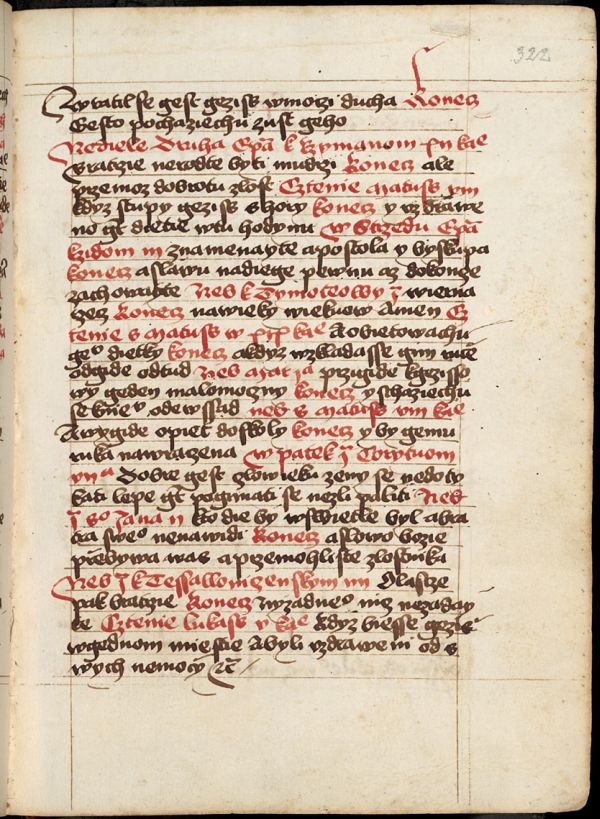 322
Wratil se gest geziss wmoczi ducha Konecz
Gesto pochaziechu zust geho
Nediele druha Epla k rzymanom xii kae
Bratrzie nerodte byti mudrzi Konecz ale
przemoz dobrotu zlost Cztenie Matuss viii
kdyz stupy geziss s hory konecz y vzdrawe
no gt dietie wtu hodynu w Strzedu Epla
kzidom iii znamenayte apostola y byskupa
konecz a slawu nadiege pewnu az dokoncze
zachowawte Neb k Tymoteowy j wierna
rzecz Konecz nawieky wiekuow Amen Cz
tenie s Matuss w xix kae A obietowachu
geo dietky konecz akdyz wzkladasse gim ruce
odgide odtud Neb Mar ja przigide kgezisso
wy geden malomoczny konecz y schaziechu
se knieo odewssad neb s Matuss viii kae
A wygide opiet do sskoly konecz y by gemu
ruka nawraczena w patek j Corytuom
vii a Dobre gest czlowieku zeny se nedoty
kati lepe gt pogimati se nezli paliti Neb
j so Jana ii kdo die by wswietle byl a bra
tra sweo nenawidi Konecz a slowo bozie
przebywa was a przemohliste zlostnika
Neb j k Tessalloniczenskym iiii O lascze
pak bratrzie Konecz zwzadneo nicz nezaday
te Cztenie lukass v kae kdyz biesse gezis
wgednom miestie A byli vzdraweni od s
wych nemoczy etc